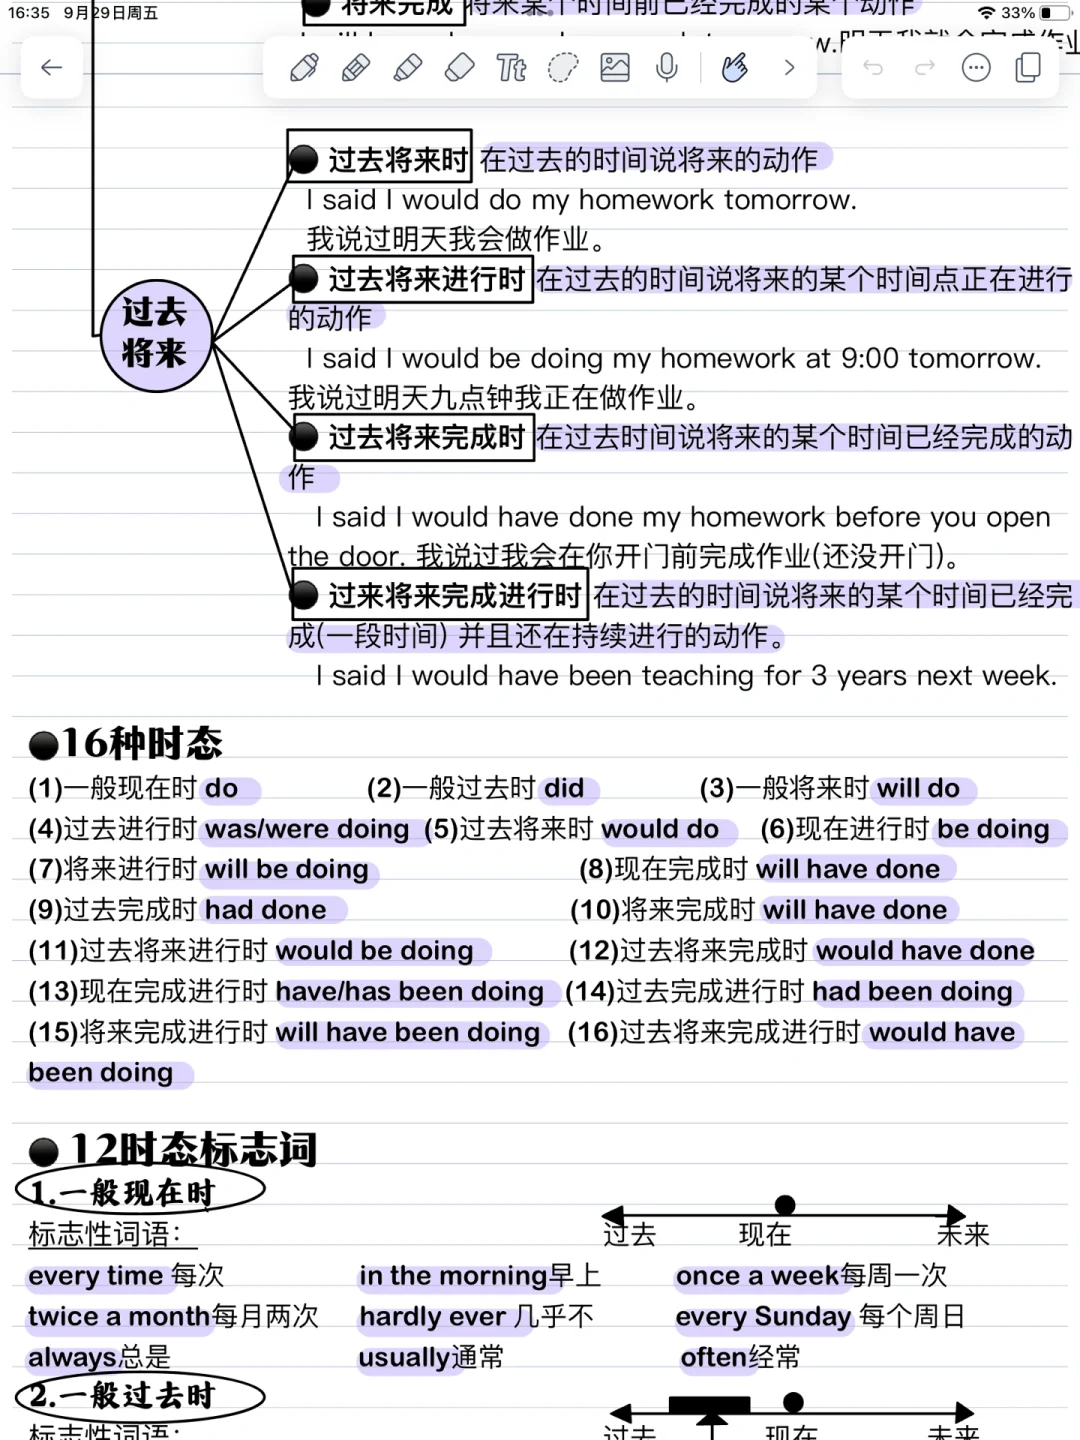 16:35 9月29日周五 33%
将来完成 将来某个时间前已经完成的某个动作
w.明天我就会完成作业
Tt
过去将来时 在过去的时间说将来的动作
I said I would do my homework tomorrow.
我说过明天我会做作业。
过去将来进行时 在过去的时间说将来的某个时间点正在进行
的动作
I said I would be doing my homework at 9:00 tomorrow.
我说过明天九点钟我正在做作业。
过去
将来
过去将来完成时 在过去时间说将来的某个时间已经完成的动
作
I said I would have done my homework before you open
the door. 我说过我会在你开门前完成作业(还没开门)。
过来将来完成进行时 在过去的时间说将来的某个时间已经完
成(一段时间) 并且还在持续进行的动作。
I said I would have been teaching for 3 years next week.
16种时态
(1)一般现在时 do (2)一般过去时 did (3)一般将来时 will do
(4)过去进行时 was/were doing (5)过去将来时 would do (6)现在进行时 be doing
(7)将来进行时 will be doing (8)现在完成时 will have done
(9)过去完成时 had done (10)将来完成时 will have done
(11)过去将来进行时 would be doing (12)过去将来完成时 would have done
(13)现在完成进行时 have/has been doing (14)过去完成进行时 had been doing
(15)将来完成进行时 will have been doing (16)过去将来完成进行时 would have
been doing
12时态标志词
1.一般现在时
标志性词语: 过去 现在 未来
every time 每次 in the morning早上 once a week每周一次
twice a month每月两次 hardly ever 几乎不 every Sunday 每个周日
always总是 usually通常 often经常
2.一般过去时
标志性词语: 过去 现在 未来